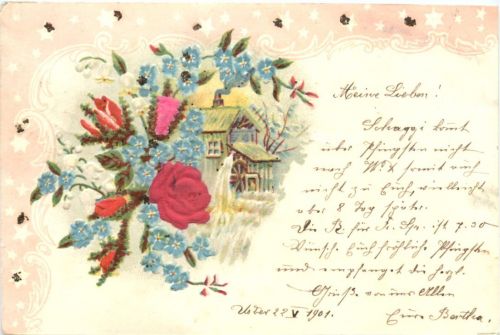 Meine Lieben!
Schaggi kommt
über Pfingsten nicht
nach W. somit auch
nicht zu Euch, vielleicht
aber 8 Tag später.
Die für ist 7.30
Wünsche Euch fröhliche Pfingsten
und empfanget die herzl.
Grüße von uns Allen
Uster 22 V 1901. Eure Bertha.